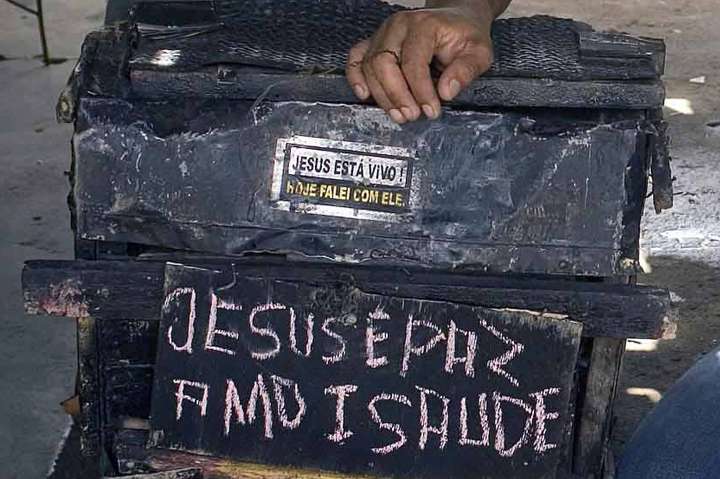 JESUS ESTÁ VIVO !
HOJE FALEI COM ELE.
JESUS É PAZ
AMO I SAUDE